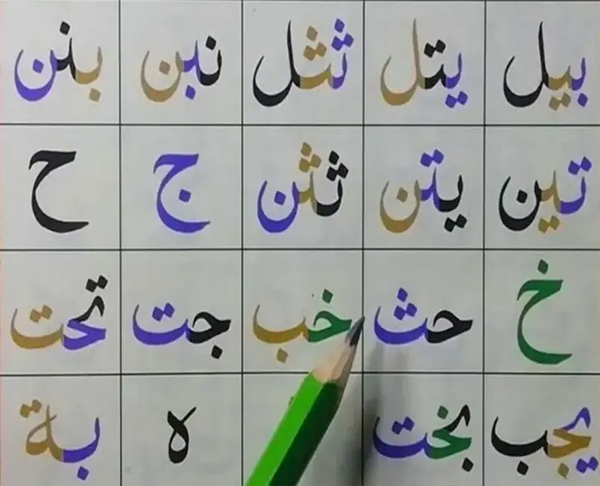 بيل يتل ثثل نبن بنن
تين يتن ثثن ج ح
خ حث خب جت تحت
يجب بخت ه بة